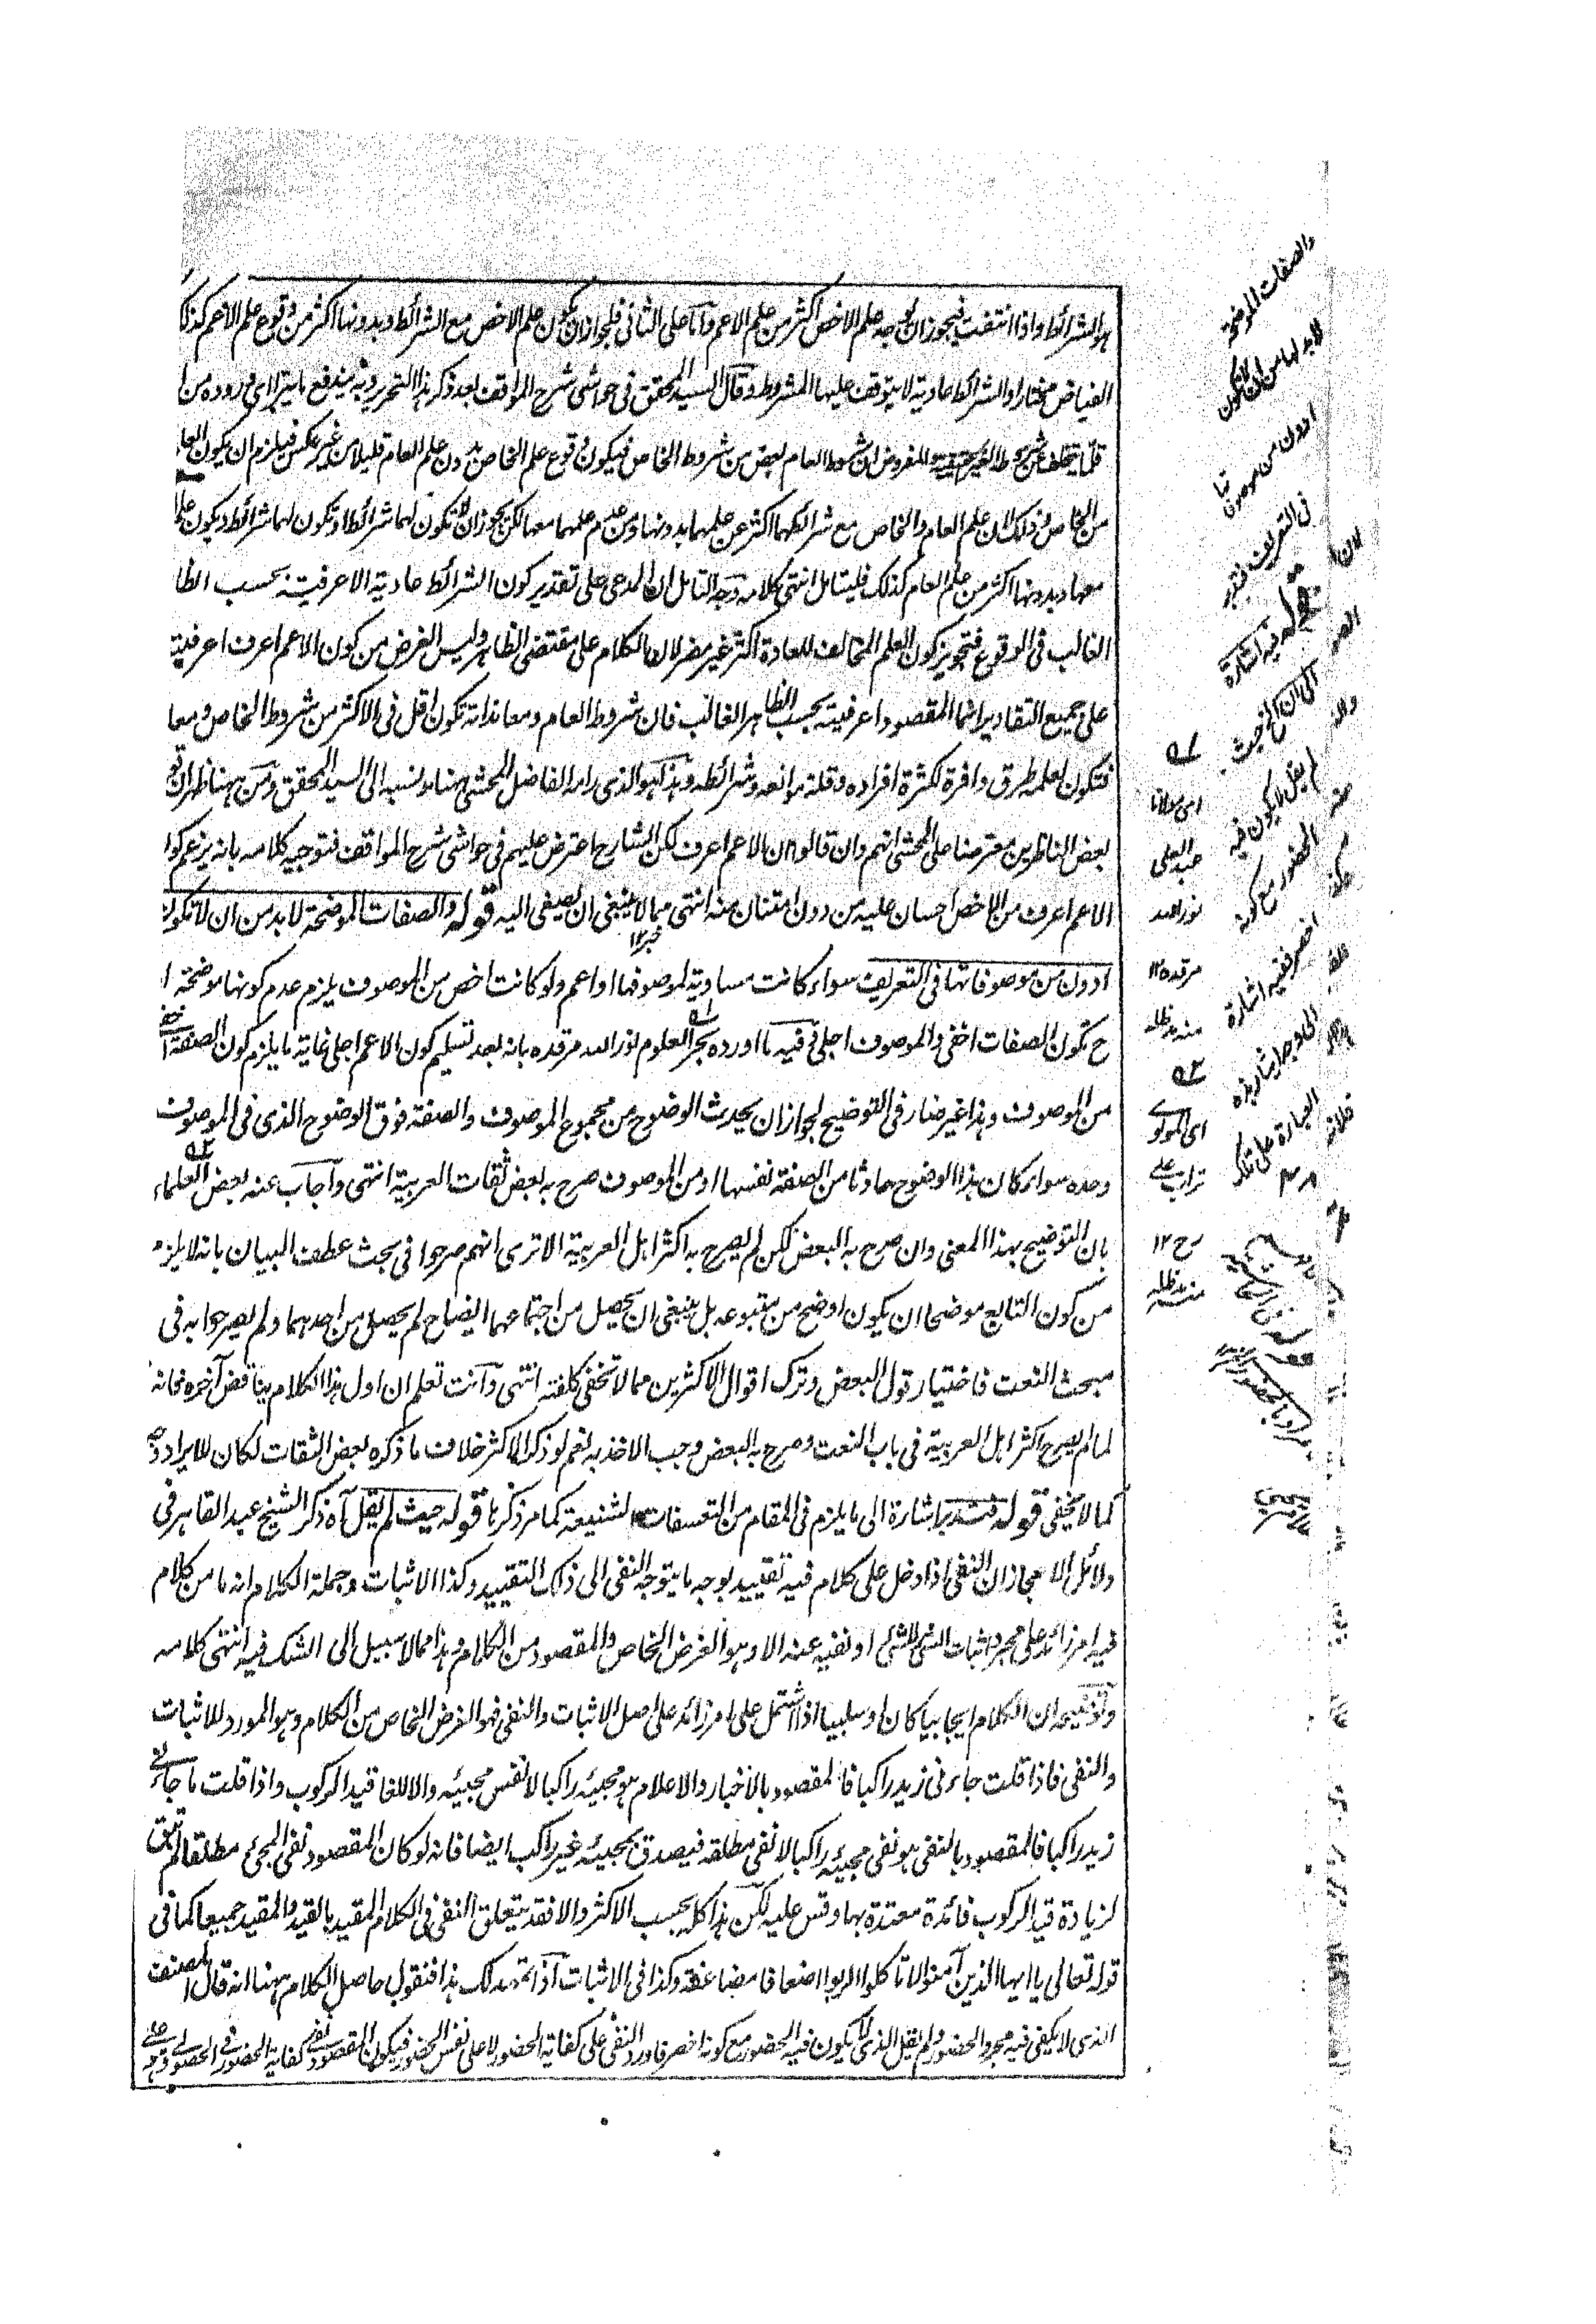 هو الشرائط واذا انتفت فيجوز ان يوجد علم الاخص اكثر من علم الاعم واما على الثانى فلجواز ان يكون علم الاخص مع الشرائط وبدونها اكثر من وقوع علم الاعم كذلك
الفياض مختارا والشرائط عادية لا يتوقف عليها المشروط وقال السيد المحقق فى حواشى شرح المواقف بعد ذكر هذا التحرير وبه يندفع ما يترا اى وروده من
قلما يتخلف عن المفروض ان شروط العام بعض من شروط الخاص فيكون وقوع علم الخاص بدون علم العام قليلا من غير عكس فيلزم ان يكون العا
من الخاص وذلك لان علم العام والخاص مع شرائطهما اكثر عن علمهما بدونها ومن عدم علمهما معها لكن يجوز ان لا تكون لهما شرائط او تكون لهما شرائط ويكون علم
معها وبدونها اكثر من علم العام كذلك فليتامل انتهى كلامه وجه التامل ان المدعى على تقدير كون الشرائط عادية الاعرفية بحسب الظا
الغالب فى الوقوع فتجويز كون العلم المخالف للعادة اكثر غير مضر لان الكلام على مقتضى الظاهر وليس الغرض من كون الاعم اعرف اعرفيته
على جميع التقادير انما المقصود اعرفيته بحسب الظاهر الغالب فان شروط العام ومعانداته تكون اقل فى الاكثر من شروط الخاص ومعا
فتكون لعلمه طرق وافرة لكثرة افراده وقلة موانعه وشرائطه وهذا هو الذى رامه الفاضل المحشى ههنا ونسبه الى السيد المحقق ومن ههنا ظهر ان قو
بعض الناظرين معترضا على المحشى انهم وان قالوا ان الاعم اعرف لكن الشارح اعترض عليهم فى حواشى شرح المواقف فتوجيه كلامه بانه يزعم كون
الاعم اعرف من الاخص احسان عليه من دون امتنان منه انتهى مما لا ينبغى ان يصغى اليه قوله والصفات الموضحة لا بد من ان لا تكون
ادون من موصوفاتها فى التعريف سواء كانت مساوية لموصوفها او اعم ولو كانت اخص من الموصوف يلزم عدم كونها موضحة
ح تكون الصفات اخفى والموصوف اجلى فيه ما اورده بحر العلوم نور الله مرقده بانه بعد تسليم كون الاعم اجلى غاية ما يلزم كون الصفة اخفى
من الموصوف وهذا غير ضار فى التوضيح لجواز ان يحدث الوضوح من مجموع الموصوف والصفة فوق الوضوح الذى فى الموصوف
وحده سواء كان هذا الوضوح حادثا من الصفة نفسها او من الموصوف صرح به بعض ثقات العربية انتهى واجاب عنه بعض العلماء
بان التوضيح بهذا المعنى وان صرح به البعض لكن لم يصرح به اكثر اهل العربية الا ترى انهم صرحوا فى بحث عطف البيان بانه لا يلزم
من كون التابع موضحا ان يكون اوضح من متبوعه بل ينبغى ان يحصل من اجتماعهما ايضاح لم يحصل من احدهما ولم يصرحوا به فى
مبحث النعت فاختيار قول البعض وترك اقوال الاكثرين مما لا تخفى كلفته انتهى وانت تعلم ان اول هذا الكلام يناقض آخره فانه
لما لم يصرح اكثر اهل العربية فى باب النعت وصرح به البعض وجب الاخذ به نعم لو ذكر الاكثر خلاف ما ذكره بعض الثقات لكان للايراد وجه
كما لا يخفى قوله فتدبر اشارة الى ما يلزم فى المقام من التعسفات الشنيعة كما مر ذكرها قوله حيث لم يقل آه ذكر الشيخ عبد القاهر فى
دلائل الاعجاز ان النفى اذا دخل على كلام فيه تقييد بوجه ما يتوجه النفى الى ذلك التقييد وكذا الاثبات وجملة الكلام انه ما من كلام
فيه امر زائد على مجرد اثبات الشئ للشئ او نفيه عنه الا وهو الغرض الخاص والمقصود من الكلام وهذا مما لا سبيل الى الشك فيه انتهى كلامه
وتوضيحه ان الكلام ايجابيا كان او سلبيا اذا اشتمل على امر زائد على اصل الاثبات والنفى فهو الغرض الخاص من الكلام وهو المورد للاثبات
والنفى فاذا قلت جاءنى زيد راكبا فالمقصود بالاخبار والاعلام هو مجيئه راكبا لا نفس مجيئه والا للغا قيد الركوب واذا قلت ما جاءنى
زيد راكبا فالمقصود بالنفى هو نفى مجيئه راكبا لا نفى مطلقه فيصدق بمجيئه غير راكب ايضا فانه لو كان المقصود نفى المجئ مطلقا لم تبق
لزيادة قيد الركوب فائدة معتدة بها وقس عليه لكن هذا كله بحسب الاكثر والا فقد يتعلق النفى فى الكلام المقيد بالقيد والمقيد جميعا كما فى
قوله تعالى يا ايها الذين آمنوا لا تاكلوا الربوا اضعافا مضاعفة وكذا فى الاثبات اذا تمهد لك هذا فنقول حاصل الكلام ههنا انه قال المصنف
الذى لا يكفى فيه مجرد الحضور ولم يقل الذى لا يكون فيه الحضور مع كونه اخصر فاورد النفى على كفاية الحضور لا على نفس الحضور فيكون المقصود نفى كفاية الحضور فى الحصولى
والصفات الموضحة
لابد لها من ان لا تكون
ادون من موصوفاتها
فى التعريف فتدبر
قوله فيه اشارة
الى ان الخ حيث
لم يقل لا يكون فيه
الحضور مع كونه
اخصر ففيه اشارة
العبارة على تلك
١٢
ای مولانا
عبد العلى
نور الله
مرقده ١٢
منه مد ظله
ای المولوی
تراب على
رح ١٢
منه مد ظله